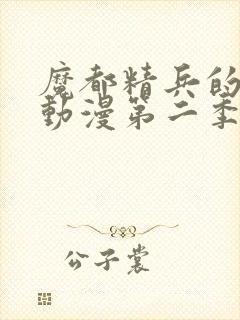 魔都精兵的
動漫第二季
公子裳